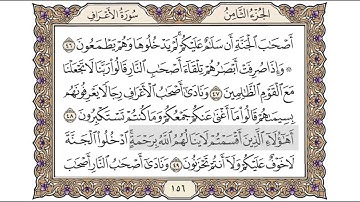 الجزء الثامن
سورة الأعراف
أَصْحَٰبَ ٱلْجَنَّةِ أَن سَلَٰمٌ عَلَيْكُمْ ۚ لَمْ يَدْخُلُوهَا وَهُمْ يَطْمَعُونَ ٤٦
۞ وَإِذَا صُرِفَتْ أَبْصَٰرُهُمْ تِلْقَآءَ أَصْحَٰبِ ٱلنَّارِ قَالُوا۟ رَبَّنَا لَا تَجْعَلْنَا
مَعَ ٱلْقَوْمِ ٱلظَّٰلِمِينَ ٤٧ وَنَادَىٰٓ أَصْحَٰبُ ٱلْأَعْرَافِ رِجَالًا يَعْرِفُونَهُم
بِسِيمَىٰهُمْ قَالُوا۟ مَآ أَغْنَىٰ عَنكُمْ جَمْعُكُمْ وَمَا كُنتُمْ تَسْتَكْبِرُونَ ٤٨
أَهَٰٓؤُلَآءِ ٱلَّذِينَ أَقْسَمْتُمْ لَا يَنَالُهُمُ ٱللَّهُ بِرَحْمَةٍ ۚ ٱدْخُلُوا۟ ٱلْجَنَّةَ
لَا خَوْفٌ عَلَيْكُمْ وَلَآ أَنتُمْ تَحْزَنُونَ ٤٩ وَنَادَىٰٓ أَصْحَٰبُ ٱلنَّارِ أَصْحَٰبَ
١٥٦